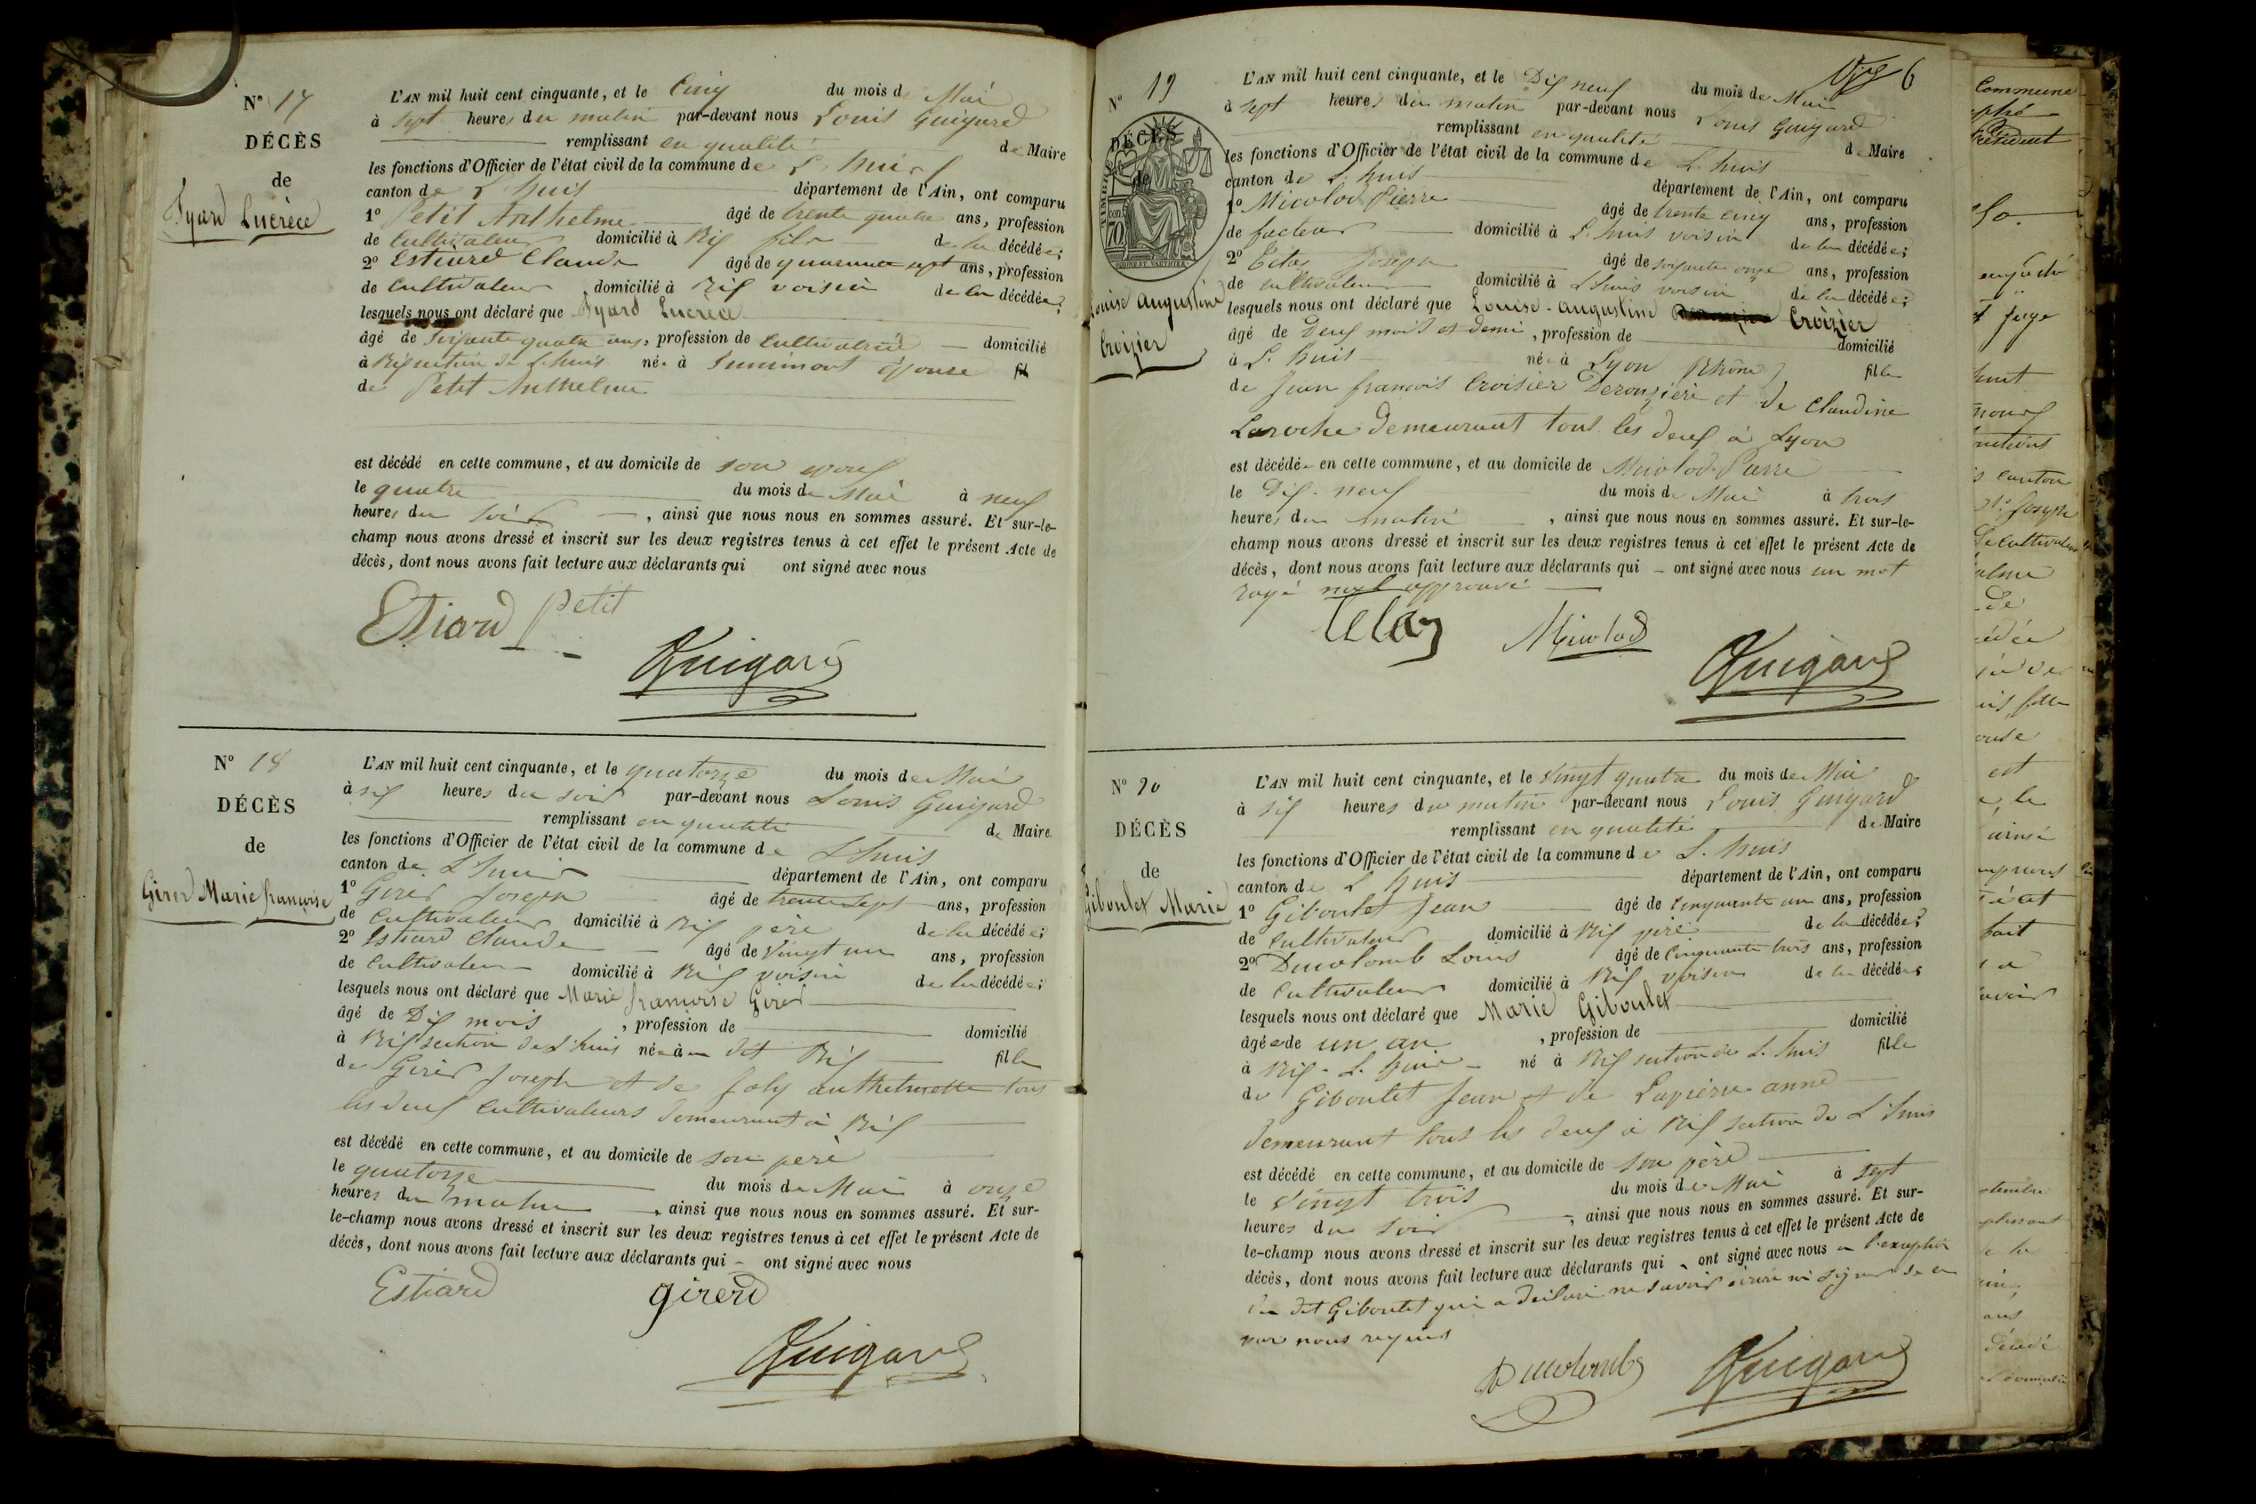 N° 17
DÉCÈS
de
Tyard Lucrèce
L'AN mil huit cent cinquante, et le Cinq du mois de Mai
à sept heures du matin par-devant nous Louis Guigard
remplissant en qualité de Maire
les fonctions d'Officier de l'état civil de la commune de L'huis
canton de L'huis département de l'Ain, ont comparu
1° Petit Anthelme âgé de trente quatre ans, profession
de Cultivateur domicilié à Rix fils de la décédée;
2° Estiard Claude âgé de quarante sept ans, profession
de Cultivateur domicilié à Rix voisin de la décédée;
lesquels nous ont déclaré que Tyard Lucrèce
âgé de soixante quatre ans, profession de Cultivatrice domicilié
à Rix section de L'huis née à épouse
de Petit Anthelme
est décédé en cette commune, et au domicile de son époux
le quatre du mois de Mai à neuf
heures du soir, ainsi que nous nous en sommes assuré. Et sur-le-
champ nous avons dressé et inscrit sur les deux registres tenus à cet effet le présent Acte de
décès, dont nous avons fait lecture aux déclarants qui ont signé avec nous
Estiard Petit
Guigard
N° 18
DÉCÈS
de
Girerd Marie françoise
L'AN mil huit cent cinquante, et le quatorze du mois de Mai
à six heures du soir par-devant nous Louis Guigard
remplissant en qualité de Maire
les fonctions d'Officier de l'état civil de la commune de L'huis
canton de L'huis département de l'Ain, ont comparu
1° Girerd Joseph âgé de trente sept ans, profession
de Cultivateur domicilié à Rix père de la décédée;
2° Estiard Claude âgé de vingt un ans, profession
de Cultivateur domicilié à Rix voisin de la décédée;
lesquels nous ont déclaré que Marie françoise Girerd
âgé de Dix mois, profession de domicilié
à Rix section de L'huis née à dit Rix fille
de Girerd Joseph et de Joly anthelmette tous
les deux Cultivateurs demeurant à Rix
est décédé en cette commune, et au domicile de son père
le quatorze du mois de Mai à onze
heures du matin, ainsi que nous nous en sommes assuré. Et sur-
le-champ nous avons dressé et inscrit sur les deux registres tenus à cet effet le présent Acte de
décès, dont nous avons fait lecture aux déclarants qui ont signé avec nous
Estiard girerd
Guigard
6
N° 19
DÉCÈS
de
Louise augustine
Croizier
L'AN mil huit cent cinquante, et le Dix neuf du mois de Mai
à sept heures du matin par-devant nous Louis Guigard
remplissant en qualité de Maire
les fonctions d'Officier de l'état civil de la commune de L'huis
canton de L'huis département de l'Ain, ont comparu
1° Micolod Pierre âgé de trente cinq ans, profession
de facteur domicilié à L'huis voisin de la décédée;
2° Joseph âgé de soixante onze ans, profession
de cultivateur domicilié à L'huis voisin de la décédée;
lesquels nous ont déclaré que Louise-augustine Croizier
âgé de Deux mois et demi, profession de domicilié
à L'huis née à Lyon (Rhône) fille
de Jean françois Croisier Derouzière et de Claudine
Laroche demeurant tous les deux à Lyon
est décédée en cette commune, et au domicile de Micolod Pierre
le Dix-neuf du mois de Mai à trois
heures du matin, ainsi que nous nous en sommes assuré. Et sur-le-
champ nous avons dressé et inscrit sur les deux registres tenus à cet effet le présent Acte de
décès, dont nous avons fait lecture aux déclarants qui ont signé avec nous un mot
rayé nul approuvé
Micolod
Guigard
N° 20
DÉCÈS
de
Giboulet Marie
L'AN mil huit cent cinquante, et le vingt quatre du mois de Mai
à six heures du matin par-devant nous Louis Guigard
remplissant en qualité de Maire
les fonctions d'Officier de l'état civil de la commune de L'huis
canton de L'huis département de l'Ain, ont comparu
1° Giboulet Jean âgé de cinquante un ans, profession
de Cultivateur domicilié à Rix père de la décédée;
2° Ducolomb Louis âgé de cinquante trois ans, profession
de Cultivateur domicilié à Rix voisin de la décédée;
lesquels nous ont déclaré que Marie Giboulet
âgée de un an, profession de domicilié
à Rix-L'huis né à Rix section de L'huis fille
de Giboulet Jean et de Lapierre anne
demeurant tous les deux à Rix section de L'huis
est décédé en cette commune, et au domicile de son père
le vingt trois du mois de Mai à sept
heures du soir, ainsi que nous nous en sommes assuré. Et sur-
le-champ nous avons dressé et inscrit sur les deux registres tenus à cet effet le présent Acte de
décès, dont nous avons fait lecture aux déclarants qui ont signé avec nous à l'exception
du dit Giboulet qui a déclaré ne savoir écrire ni signer de ce
par nous requis
Ducolomb
Guigard